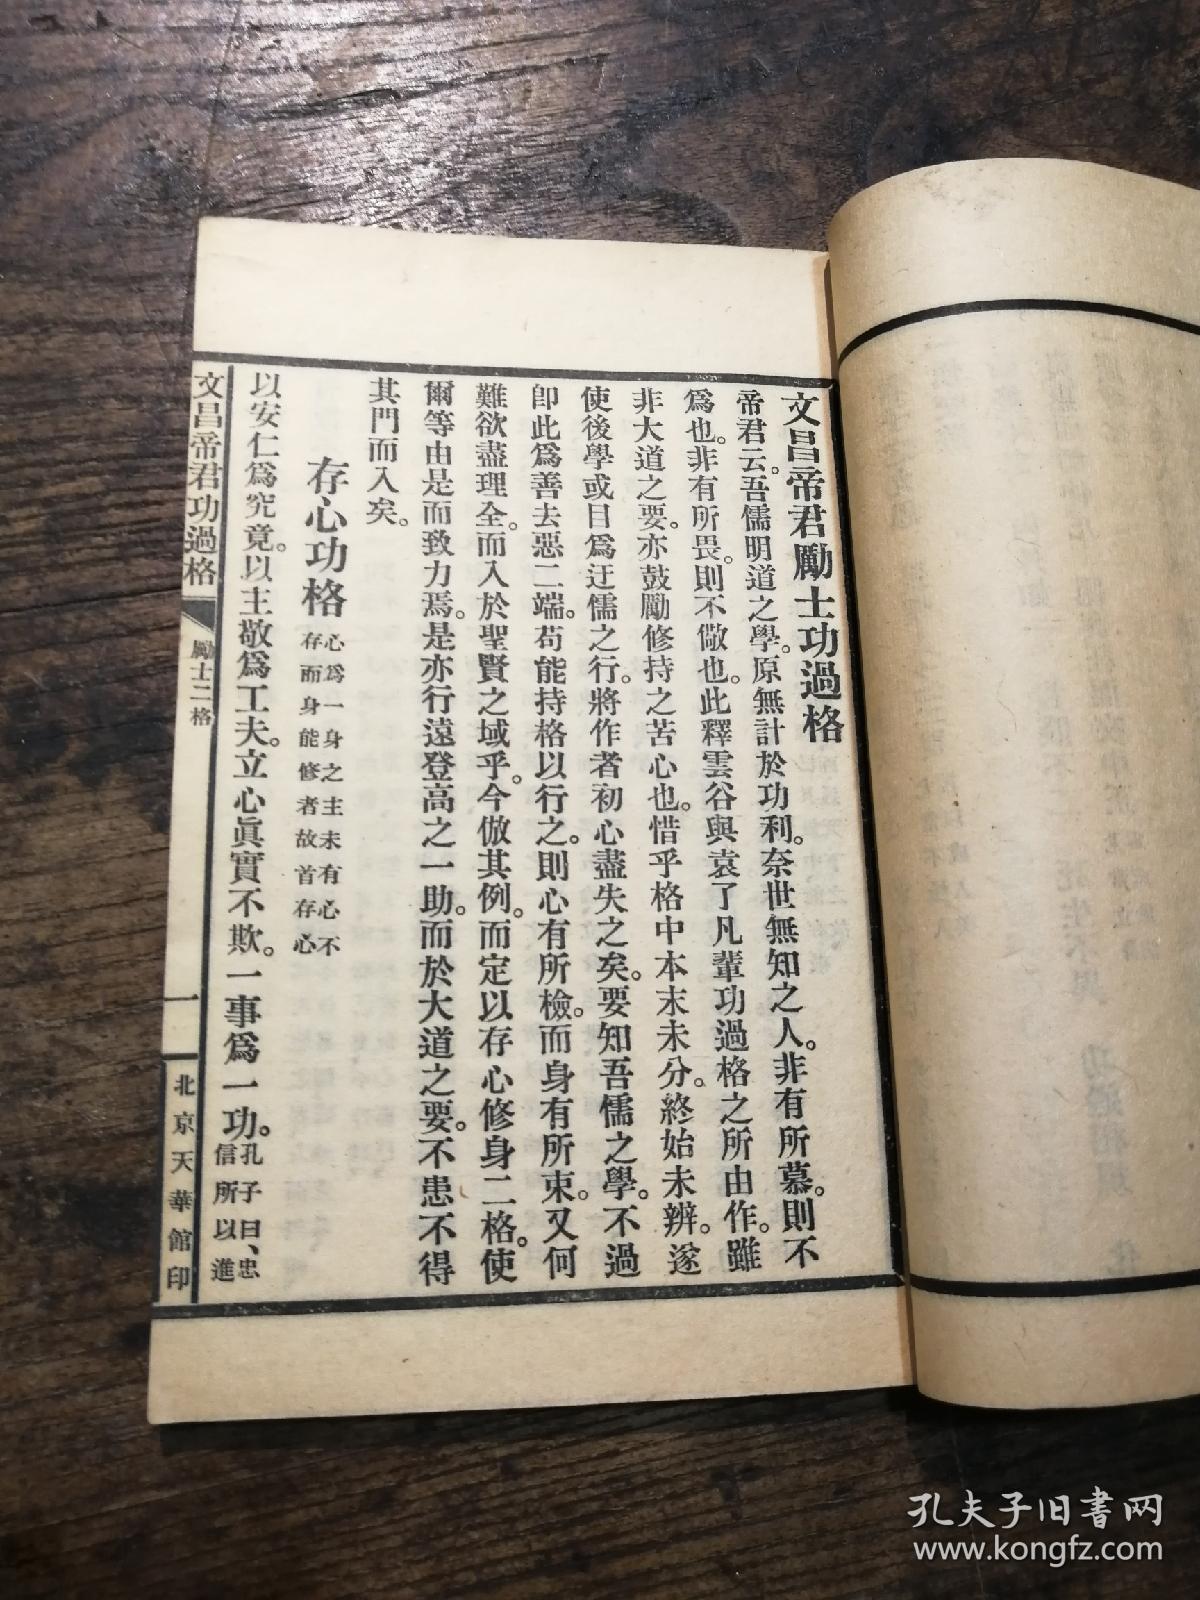 文昌帝君勵士功過格
帝君云。吾儒明道之學。原無計於功利。奈世無知之人。非有所慕。則不
爲也。非有所畏。則不儆也。此釋雲谷與袁了凡輩功過格之所由作。雖
非大道之要。亦鼓勵修持之苦心也。惜乎格中本末未分。終始未辨。遂
使後學或目爲迂儒之行。將作者初心盡失之矣。要知吾儒之學。不過
卽此爲善去惡二端。苟能持格以行之。則心有所檢。而身有所束。又何
難欲盡理全。而入於聖賢之域乎。今倣其例。而定以存心修身二格。使
爾等由是而致力焉。是亦行遠登高之一助。而於大道之要。不患不得
其門而入矣。
存心功格 心爲一身之主未有心不
存而身能修者故首存心
以安仁爲究竟。以主敬爲工夫。立心眞實不欺。一事爲一功。孔子曰、忠
信所以進
文昌帝君功過格 勵士二格 一 北京天華館印
孔夫子旧书网
www.kongfz.com